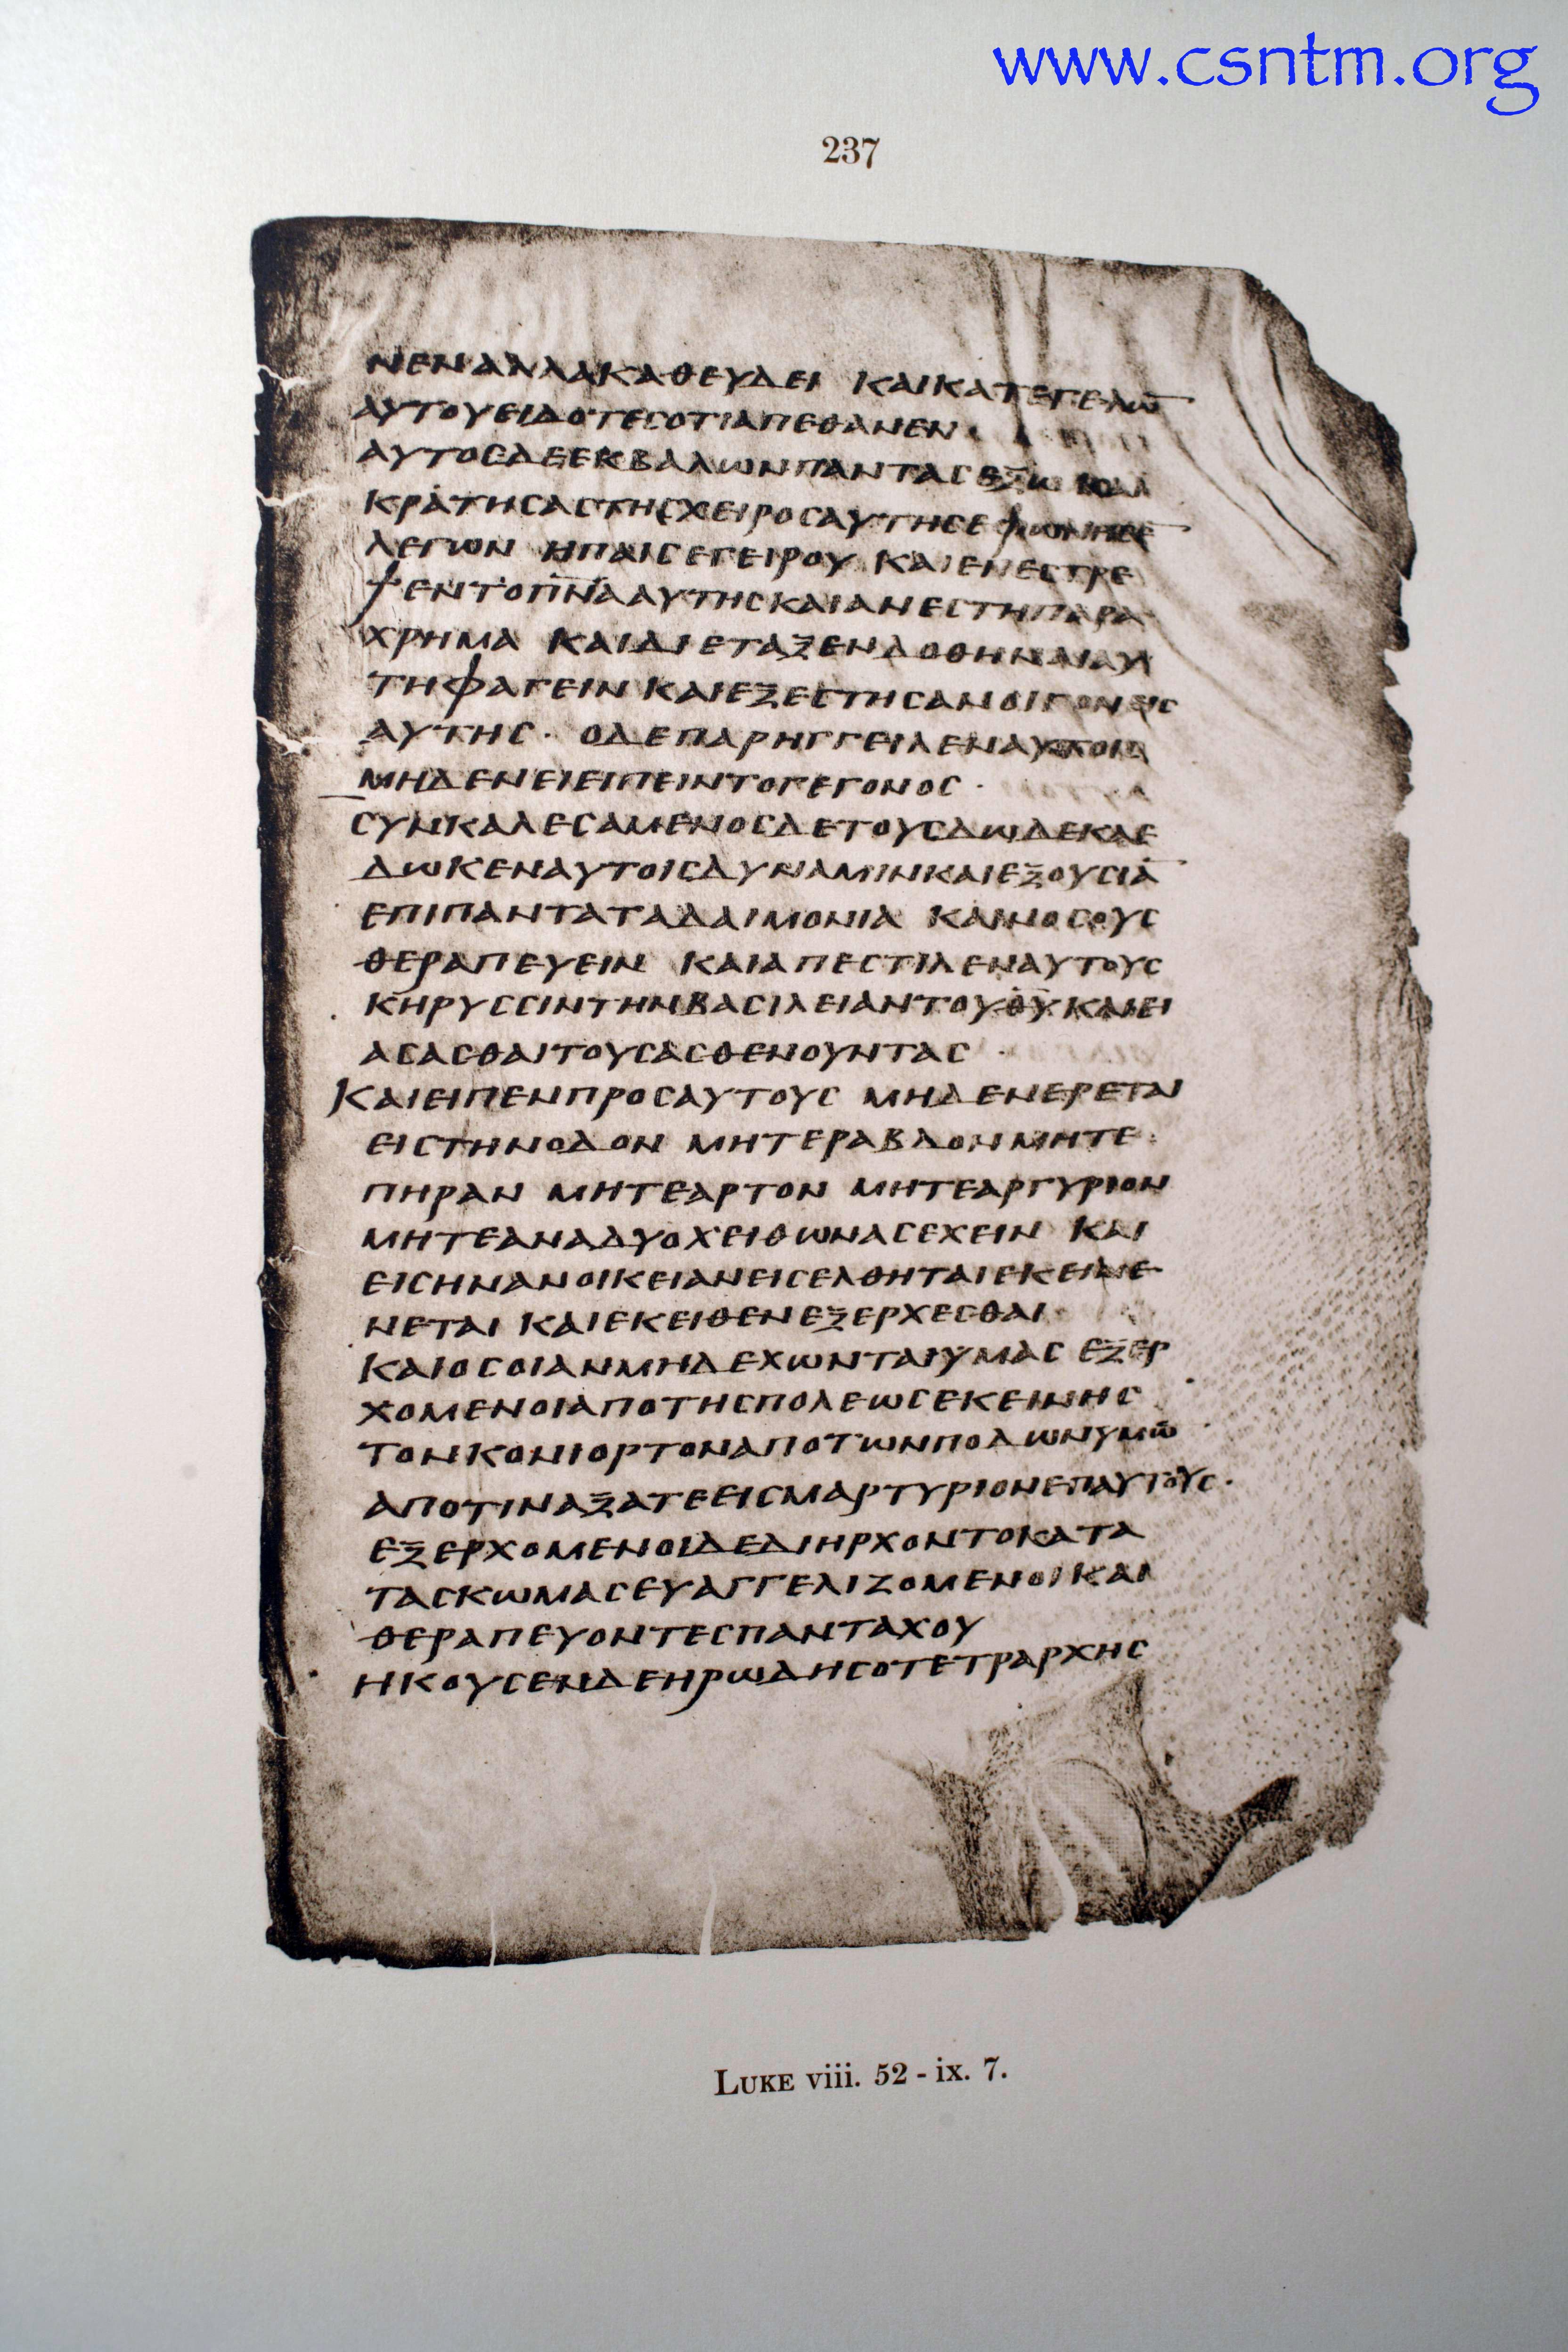 www.csntm.org
237
ΝΕΝΑΛΛΑΚΑΘΕΥΔΕΙ ΚΑΙΚΑΤΕΓΕΛΩ̅
ΑΥΤΟΥΕΙΔΟΤΕϹΟΤΙΑΠΕΘΑΝΕΝ
ΑΥΤΟϹΔΕΕΚΒΑΛΩΝΠΑΝΤΑϹΕΞΩ ΚΑΙ
ΚΡΑΤΗϹΑϹΤΗϹΧΕΙΡΟϹΑΥΤΗϹΕΦΩΝΗϹΕ̅
ΛΕΓΩΝ ΗΠΑΙϹΕΓΕΙΡΟΥ ΚΑΙΕΠΕϹΤΡΕ
ΨΕΝΤΟΠ̅Ν̅Α̅ΑΥΤΗϹΚΑΙΑΝΕϹΤΗΠΑΡΑ
ΧΡΗΜΑ ΚΑΙΔΙΕΤΑΞΕΝΔΟΘΗΝΑΙΑΥ
ΤΗΦΑΓΕΙΝ ΚΑΙΕΞΕϹΤΗϹΑΝΟΙΓΟΝΕΙϹ
ΑΥΤΗϹ· ΟΔΕΠΑΡΗΓΓΕΙΛΕΝΑΥΤΟΙϹ
ΜΗΔΕΝΕΙΕΙΠΕΙΝΤΟΓΕΓΟΝΟϹ·
ϹΥΝΚΑΛΕϹΑΜΕΝΟϹΔΕΤΟΥϹΔΩΔΕΚΑΕ
ΔΩΚΕΝΑΥΤΟΙϹΔΥΝΑΜΙΝΚΑΙΕΞΟΥϹΙΑ̅
ΕΠΙΠΑΝΤΑΤΑΔΑΙΜΟΝΙΑ ΚΑΙΝΟϹΟΥϹ
ΘΕΡΑΠΕΥΕΙΝ ΚΑΙΑΠΕϹΤΙΛΕΝΑΥΤΟΥϹ
ΚΗΡΥϹϹΙΝΤΗΝΒΑϹΙΛΕΙΑΝΤΟΥΘ̅Υ̅ΚΑΙΕΙ
ΑϹΑϹΘΑΙΤΟΥϹΑϹΘΕΝΟΥΝΤΑϹ·
ΚΑΙΕΙΠΕΝΠΡΟϹΑΥΤΟΥϹ ΜΗΔΕΝΕΡΕΤΑΙ
ΕΙϹΤΗΝΟΔΟΝ ΜΗΤΕΡΑΒΔΟΝΜΗΤΕ
ΠΗΡΑΝ ΜΗΤΕΑΡΤΟΝ ΜΗΤΕΑΡΓΥΡΙΟΝ
ΜΗΤΕΑΝΑΔΥΟΧΕΙΘΩΝΑϹΕΧΕΙΝ ΚΑΙ
ΕΙϹΗΝΑΝΟΙΚΕΙΑΝΕΙϹΕΛΘΗΤΑΙΕΚΕΙΜΕ
ΝΕΤΑΙ ΚΑΙΕΚΕΙΘΕΝΕΞΕΡΧΕϹΘΑΙ
ΚΑΙΟϹΟΙΑΝΜΗΔΕΧΩΝΤΑΙΥΜΑϹ ΕΞΕΡ
ΧΟΜΕΝΟΙΑΠΟΤΗϹΠΟΛΕΩϹΕΚΕΙΝΗϹ
ΤΟΝΚΟΝΙΟΡΤΟΝΑΠΟΤΩΝΠΟΔΩΝΥΜΩ̅
ΑΠΟΤΙΝΑΞΑΤΕΕΙϹΜΑΡΤΥΡΙΟΝΕΠΑΥΤΟΥϹ·
ΕΞΕΡΧΟΜΕΝΟΙΔΕΔΙΗΡΧΟΝΤΟΚΑΤΑ
ΤΑϹΚΩΜΑϹΕΥΑΓΓΕΛΙΖΟΜΕΝΟΙΚΑΙ
ΘΕΡΑΠΕΥΟΝΤΕϹΠΑΝΤΑΧΟΥ
ΗΚΟΥϹΕΝΔΕΗΡΩΔΗϹΟΤΕΤΡΑΡΧΗϹ
LUKE viii. 52 - ix. 7.